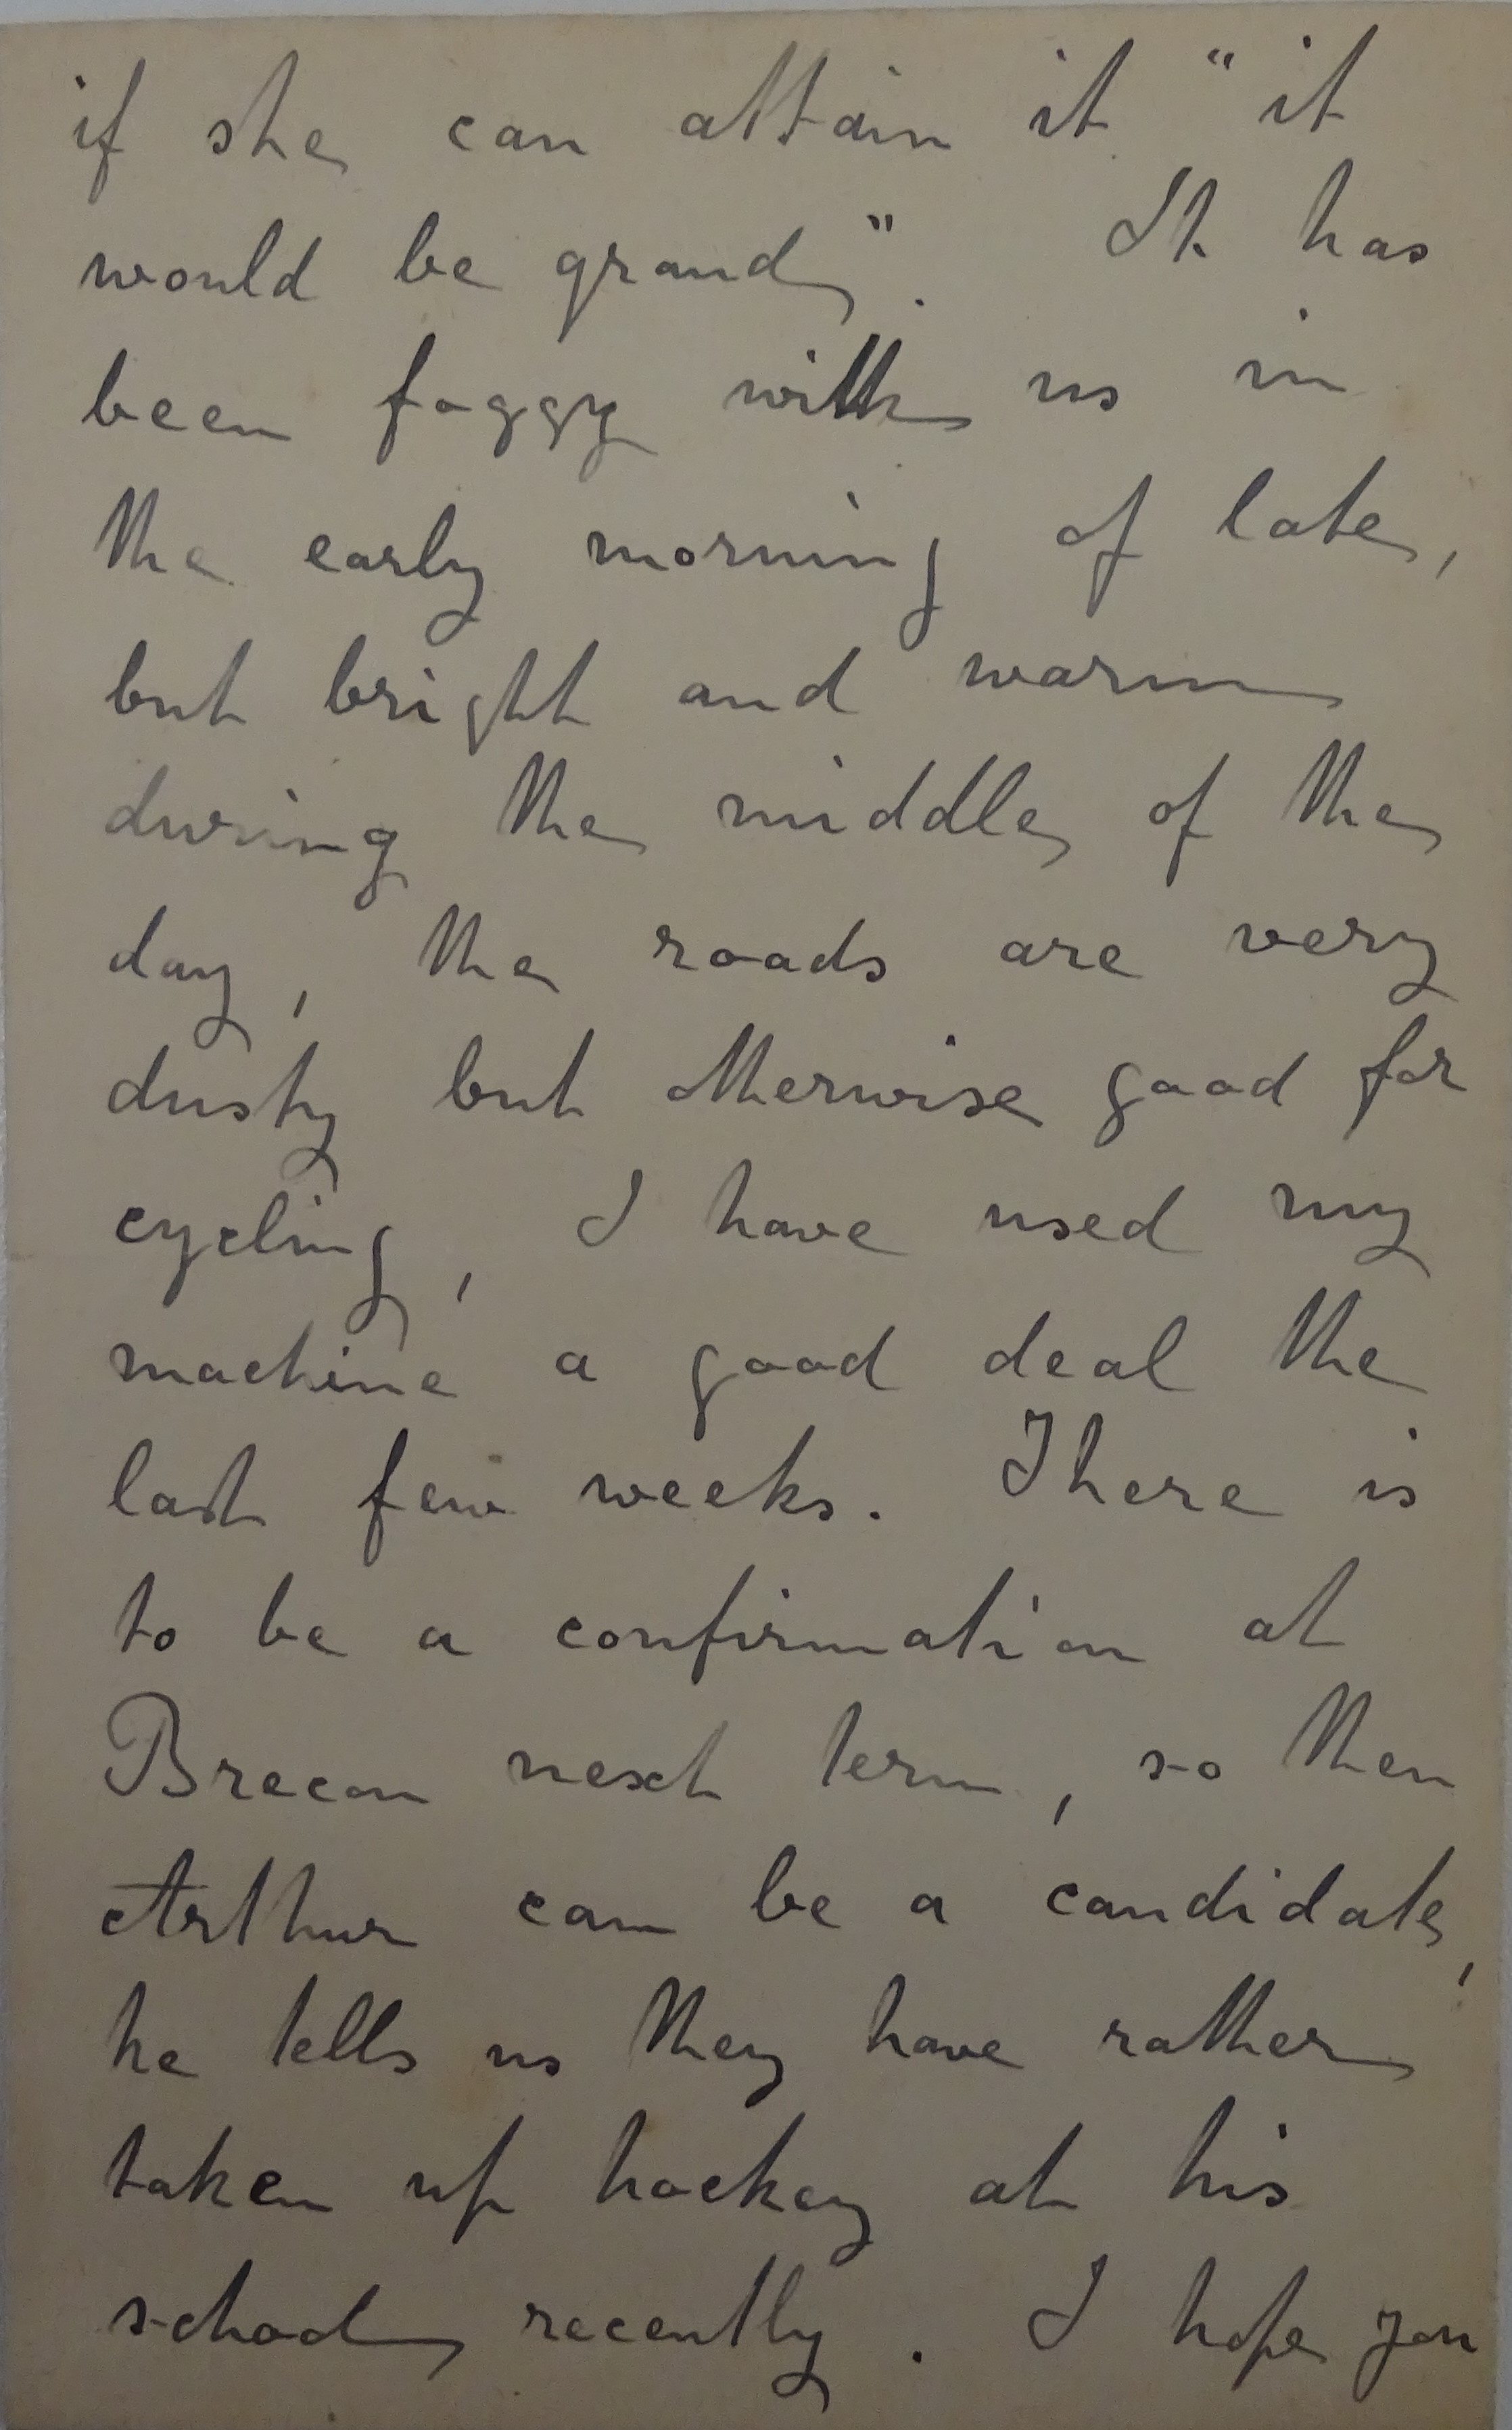 if she can attain it " it
would be grand". It has
been foggy with us in
the early morning of late,
but bright and warm
during the middle of the
day, the roads are very
dusty but otherwise good for
cycling, I have used my
machine a good deal the
last few weeks. There is
to be a confirmation at
Brecon next term, so then
Arthur can be a candidate,
he tells us they have rather
taken up hockey at his
school recently. I hope you